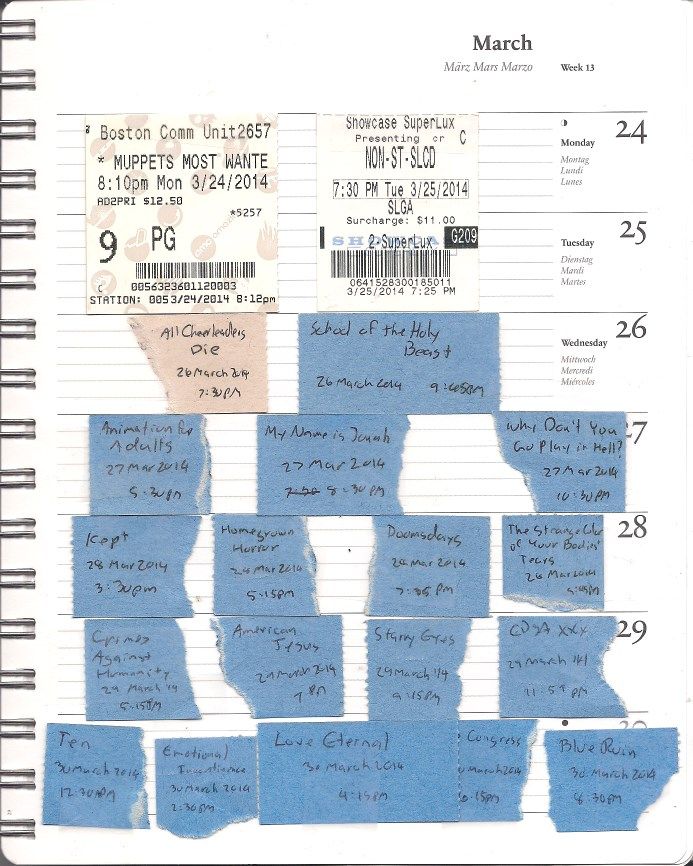 March
März Mars Marzo
Week 13
24
Monday
Montag
Lundi
Lunes
25
Tuesday
Dienstag
Mardi
Martes
26
Wednesday
Mittwoch
Mercredi
Miércoles
7
28
29
Boston Comm Unit2657
* MUPPETS MOST WANTE
8:10pm Mon 3/24/2014
AD2PRI $12.50
*5257
9 PG
C 0056323601120003
STATION: 0053/24/2014 8:12pm
Showcase SuperLux
Presenting cr C
NON-ST-SLCD
7:30 PM Tue 3/25/2014
SLGA
Surcharge: $11.00
2-SuperLux G209
0641528300185011
3/25/2014 7:25 PM
All Cheerleaders
Die
26 March 2014
7:30PM
School of the Holy
Beast
26 March 2014
Animation for
Adults
27 Mar 2014
5:30PM
My Name is Jonah
27 Mar 2014
8:30PM
Why Don't You
Go Play in Hell?
27 Mar 2014
10:30PM
Kept
28 Mar 2014
3:30pm
Homegrown
Horror
28 Mar 2014
5:15PM
Doomsdays
28 Mar 2014
The Strange Color
of Your Bodies'
Tears
28 Mar 2014
9:45PM
Crimes
Against
Humanity
29 March '14
5:15PM
American
Jesus
29 March 2014
7 PM
Starry Eyes
29 March '14
9:15PM
29 March '14
11:59 PM
Ten
30 March 2014
12:30PM
Emotional
30 March 2014
2:30PM
Love Eternal
30 March 2014
4:15PM
Congress
March 2014
6:15PM
Blue Ruin
30 March 2014
8:30PM